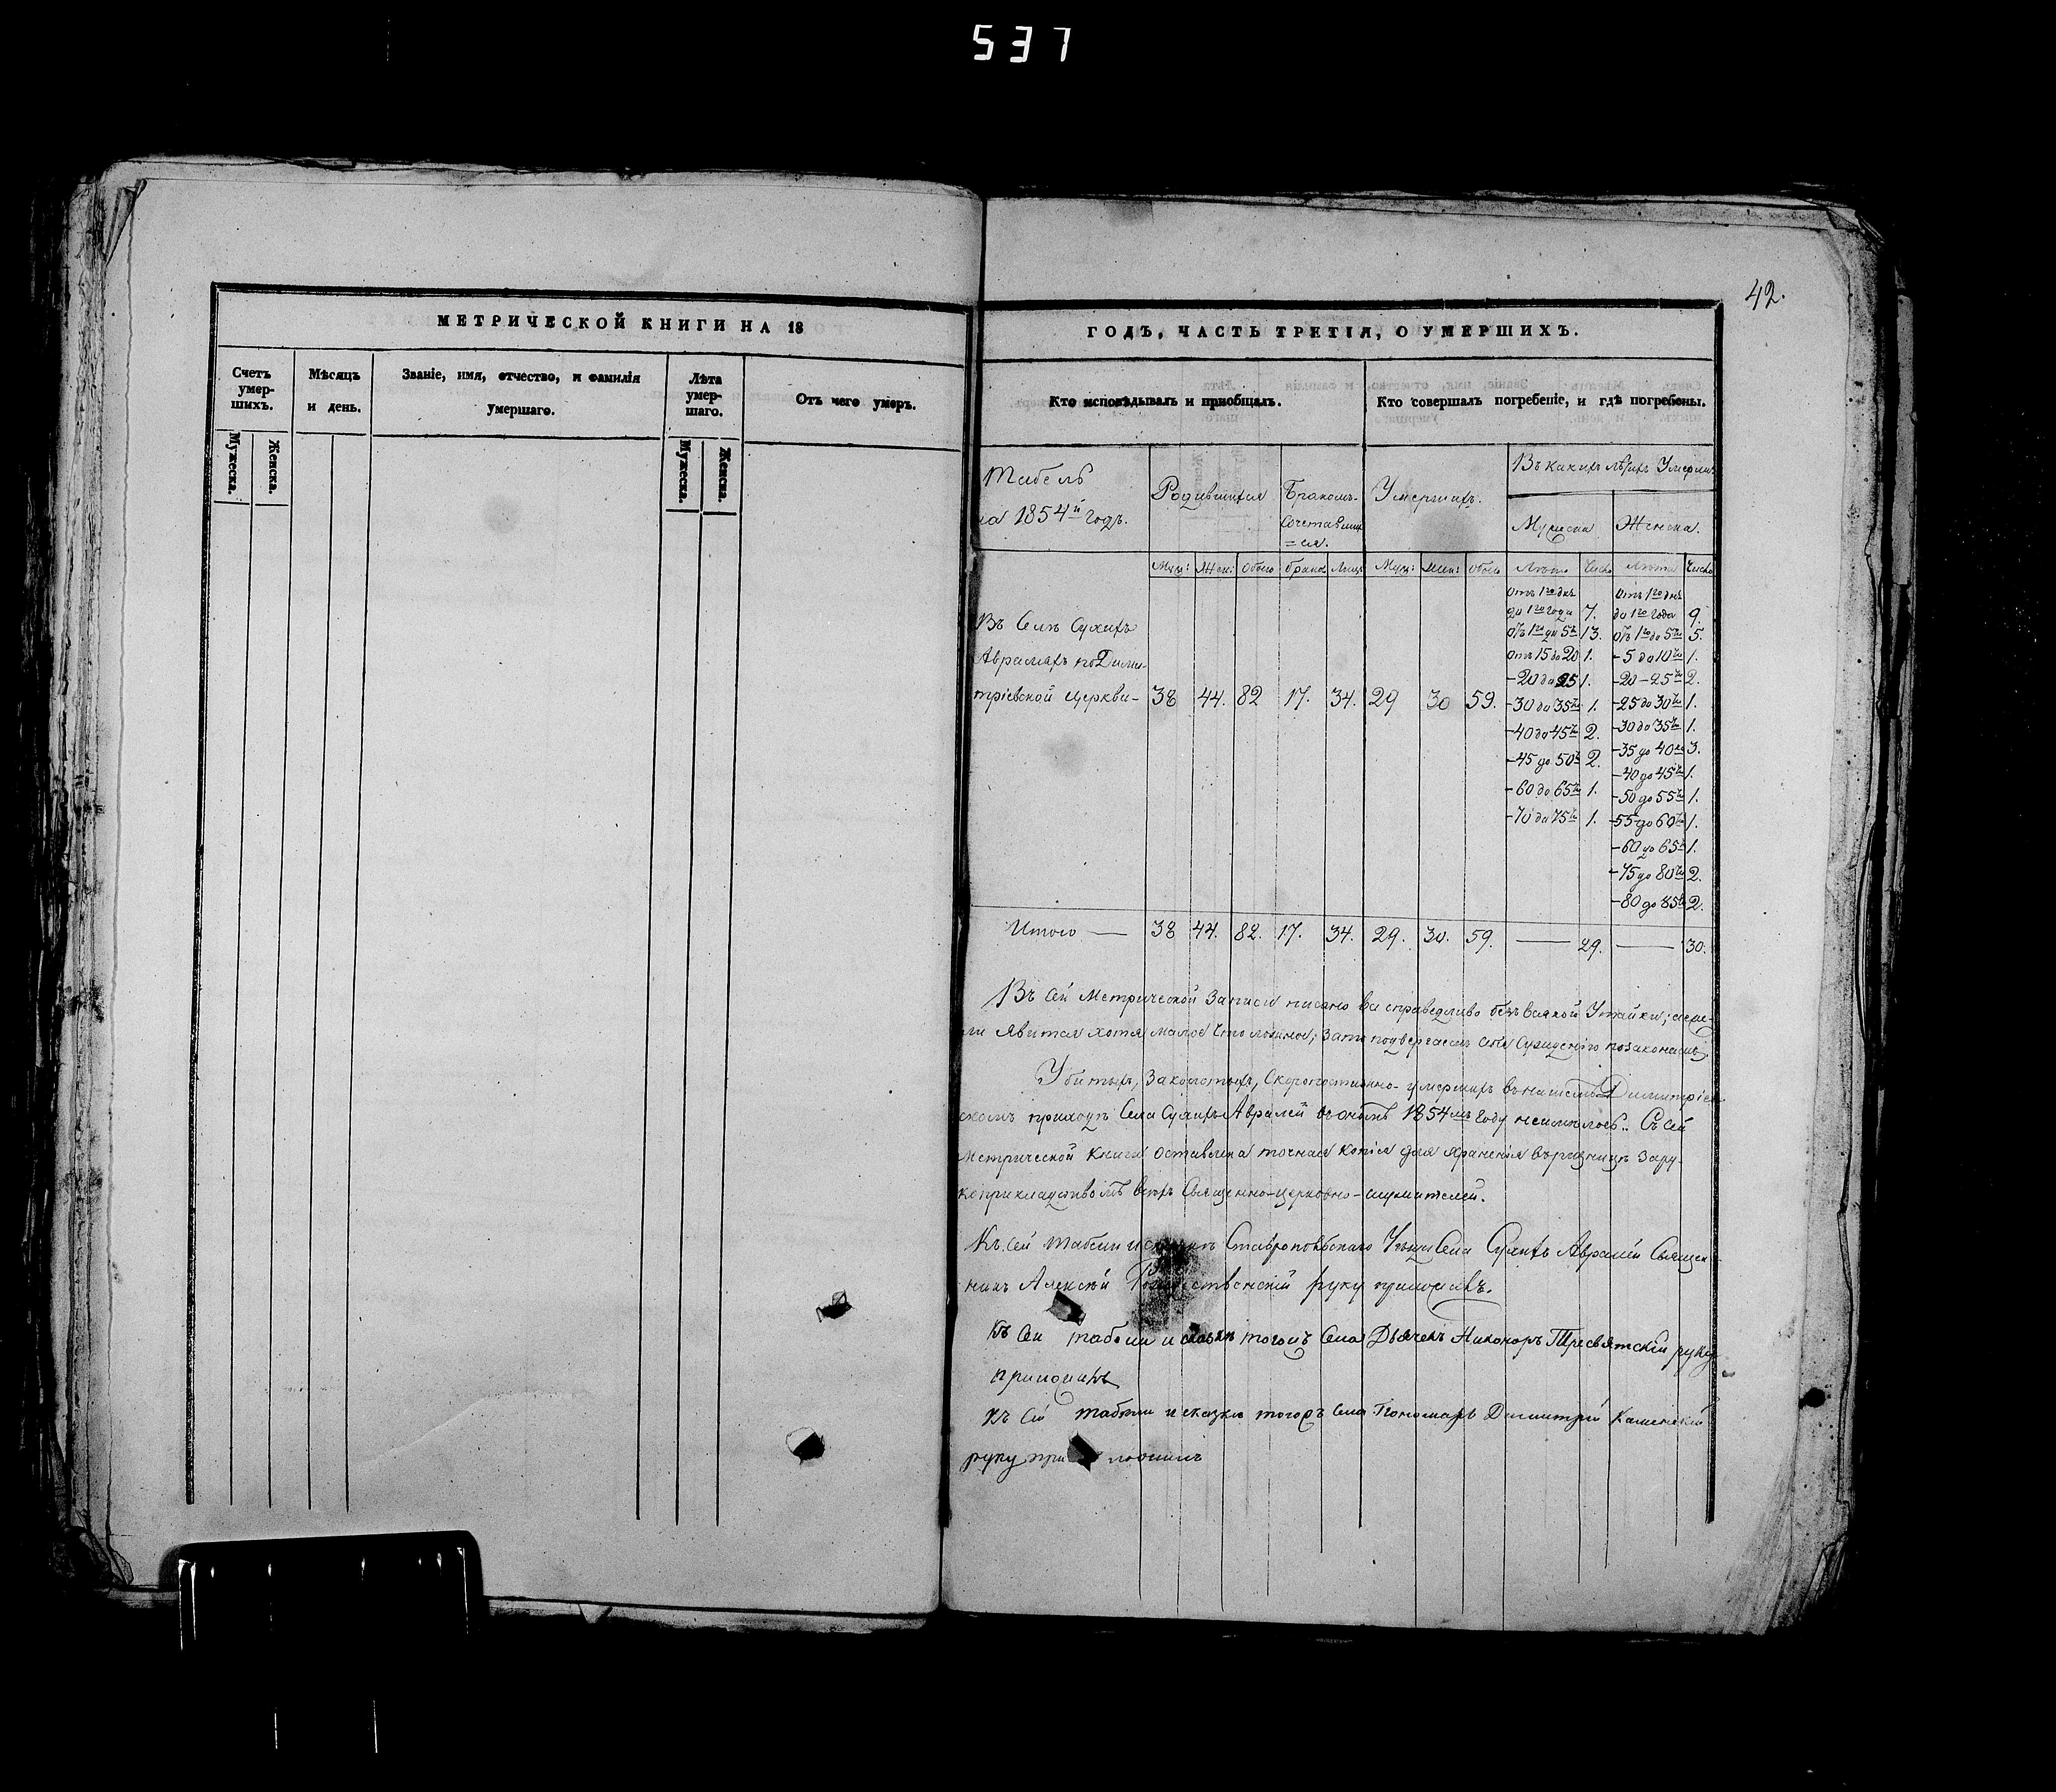 537
42.
МЕТРИЧЕСКОЙ КНИГИ НА 18
Счетъ умер- шихъ.
Мѣсяцъ и день.
Званіе, имя, отчество, и фамилія умершаго.
Лѣта умер- шаго.
Отъ чего умеръ.
Мужеска.
Женска.
Мужеска.
Женска.
ГОДЪ, ЧАСТЬ ТРЕТІЯ, О УМЕРШИХЪ.
Кто исповѣдывалъ и пріобщалъ.
Кто совершалъ погребеніе, и гдѣ погребены.
Табель
на 1854й годъ.
Родившихся
Бракомъ-
сочетавших
=ся.
Умершихъ.
Въ какихъ лѣтахъ Умерли
Мужеска
Женска.
Муж: Жен: Обоего браков Лицъ Муж: Жен: Обоего Лѣта Число Лѣта Число
Отъ 1го дня до 1го года 7.
Отъ 1го до 5ти 13.
Отъ 15 до 20 1.
-20 до 25 1.
-30 до 35ти 1.
-40 до 45ти 2.
-45 до 50ти 2.
-60 до 65ти 1.
-70 до 75ти 1.
Отъ 1го дня до 1го года 9.
Отъ 1го до 5ти 5.
-5 до 10ти 1.
-20-25ти 2.
-25 до 30ти 1.
-30 до 35ти 1.
-35 до 40ка 3.
-40 до 45ти 1.
-50 до 55ти 1.
-55 до 60ти 1.
-60 до 65ти 1.
-75 до 80ти 2.
-80 до 85ти 2.
Въ Селѣ Сухихъ
Авралахъ по Дими-
тріевской церкви- 38 44. 82 17. 34. 29 30 59.
Итого — 38 44. 82. 17. 34. 29. 30. 59. — 29. — 30.
Въ сей Метрической Записи писано все справедливо безъ всякой Утайки; а еже-
ли явится хотя малое что ложное; за то подвергаемъ себя Сужденію по законамъ
Убитыхъ, Заколотыхъ, Скоропостижно-умершихъ въ нашемъ Димитріев-
скомъ приходѣ Села Сухихъ Авралей въ ономъ 1854мъ Году не имѣлось. Съ сей
Метрической Книги оставлена точная копія для храненія въ ризницѣ за ру-
коприкладствомъ всѣхъ Священно-церковно-служителей.
Къ сей табели и сказкѣ Ставропольскаго Уѣзда Села Сухихъ Авралей Священ-
никъ Алексѣй Рождественскій руку приложилъ.
Къ сей табели и сказкѣ тогожъ Села Дьячекъ Никоноръ Тресвятскій руку
приложилъ
Къ сей табели и сказке тогожъ Села Пономарь Димитрій Каменскій
руку приложилъ